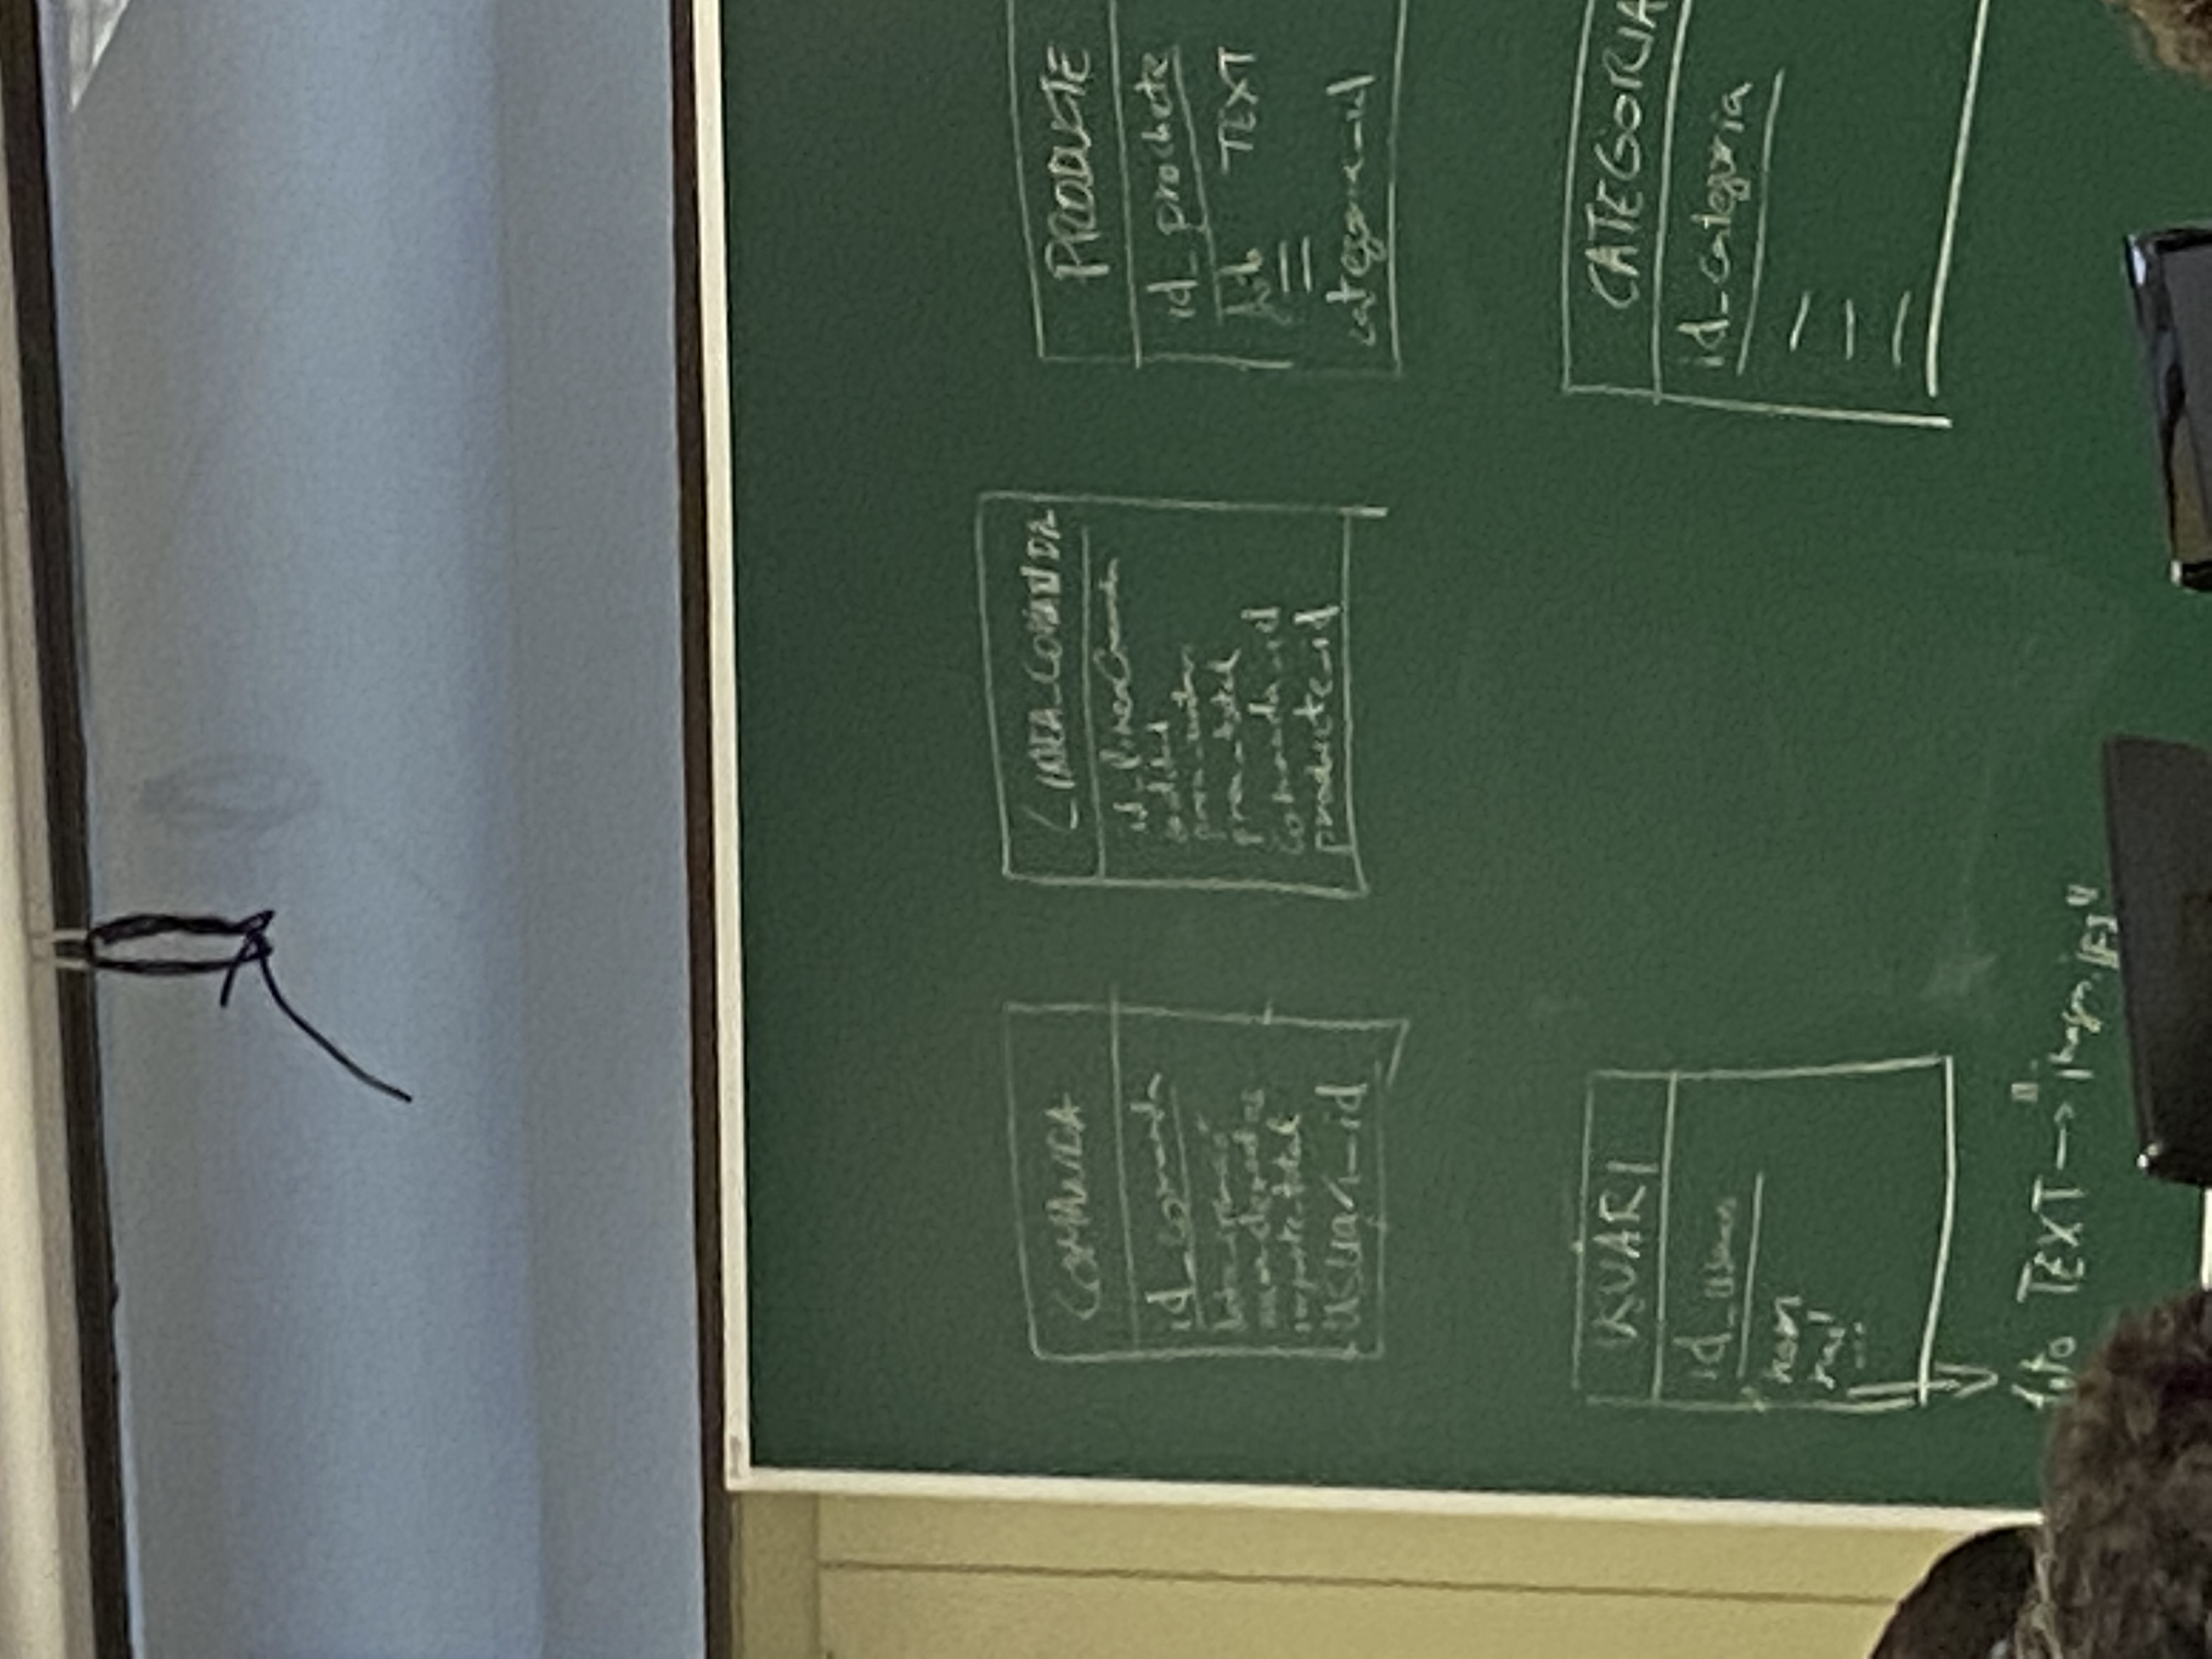 COMANDA
id_comanda
data_creació
num_elements
importe_total
usuari_id
LINEA_COMANDA
id_lineaComanda
quantitat
preu_unitari
preu_total
comanda_id
producte_id
PRODUCTE
id_producte
foto TEXT
categoria_id
USUARI
id_usuari
nom
mail
...
foto TEXT → "imagen.jpg"
CATEGORIA
id_categoria